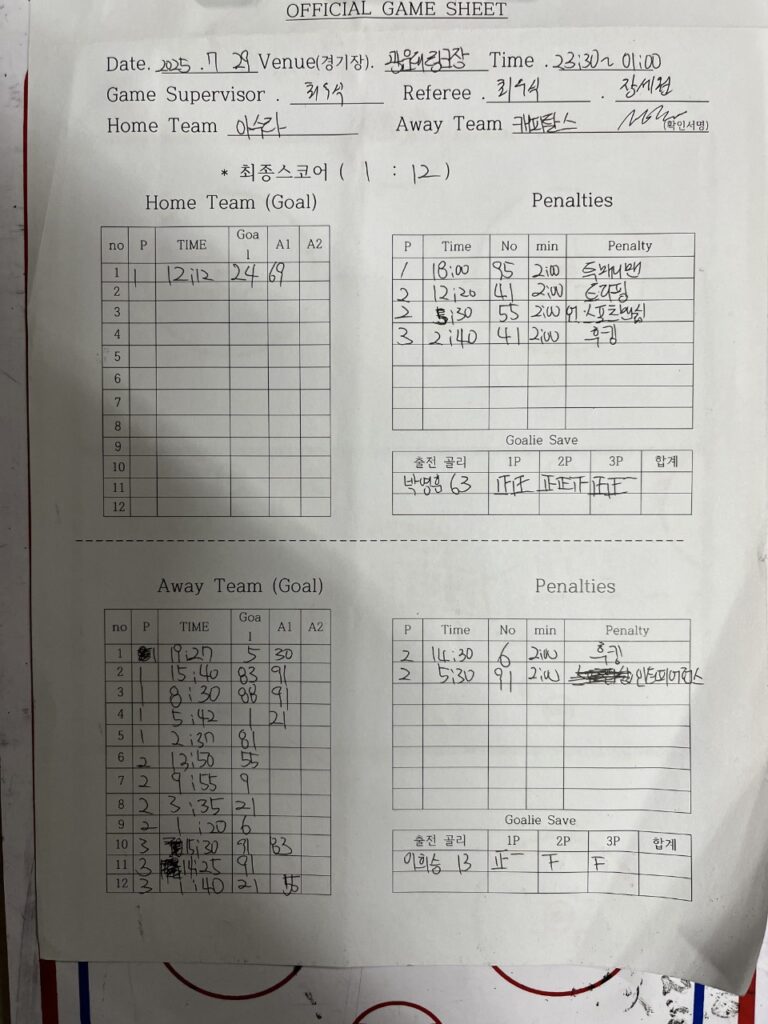 OFFICIAL GAME SHEET
Date. 2025 . 7 29 Venue(경기장). 광운대링크장 Time . 23:30~ 01:00
Game Supervisor . 최우식 Referee . 최우식 . 장세원
Home Team 아수라 Away Team 캐피탈스 (확인서명)
* 최종스코어 ( 1 : 12 )
Home Team (Goal)
no P TIME Goal A1 A2
1 1 12:12 24 69
2
3
4
5
6
7
8
9
10
11
12
Penalties
P Time No min Penalty
1 18:00 95 2:00
2 12:20 41 2:00 트리핑
2 5:30 55 2:00
3 2:40 41 2:00 후킹
Goalie Save
출전 골리 1P 2P 3P 합계
박영흠 63 正正 正正下 正正一
Away Team (Goal)
no P TIME Goal A1 A2
1 1 19:27 5 30
2 1 15:40 83 91
3 1 8:30 88 91
4 1 5:42 1 21
5 1 2:37 81
6 2 13:50 55
7 2 9:55 9
8 2 3:35 21
9 2 1:20 6
10 3 15:30 91 83
11 3 14:25 91
12 3 1:40 21 55
Penalties
P Time No min Penalty
2 14:30 6 2:00 후킹
2 5:30 91 2:00 인터피어런스
Goalie Save
출전 골리 1P 2P 3P 합계
이희승 13 正一 下 下